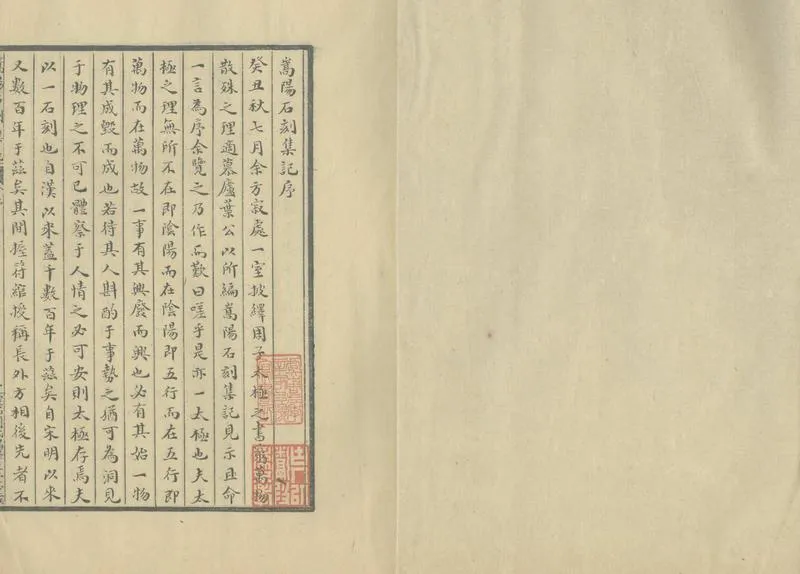 嵩陽石刻集記序
癸丑秋七月余方寂處一室披繹周子太極之書窮萬物
散殊之理適慕廬葉公以所編嵩陽石刻集記見示且命
一言為序余覽之乃作而歎曰嗟乎是亦一太極也夫太
極之理無所不在即陰陽而在陰陽即五行而在五行即
萬物而在萬物故一事有其興廢而興也必有其始一物
有其成毀而成也若待其人斟酌于事勢之猶可為洞見
于物理之不可已體察于人情之必可安則太極存焉夫
以一石刻也自漢以來蓋千數百年于茲矣自宋明以來
又數百年于茲矣其間握符綰授稱長外方相後先者不